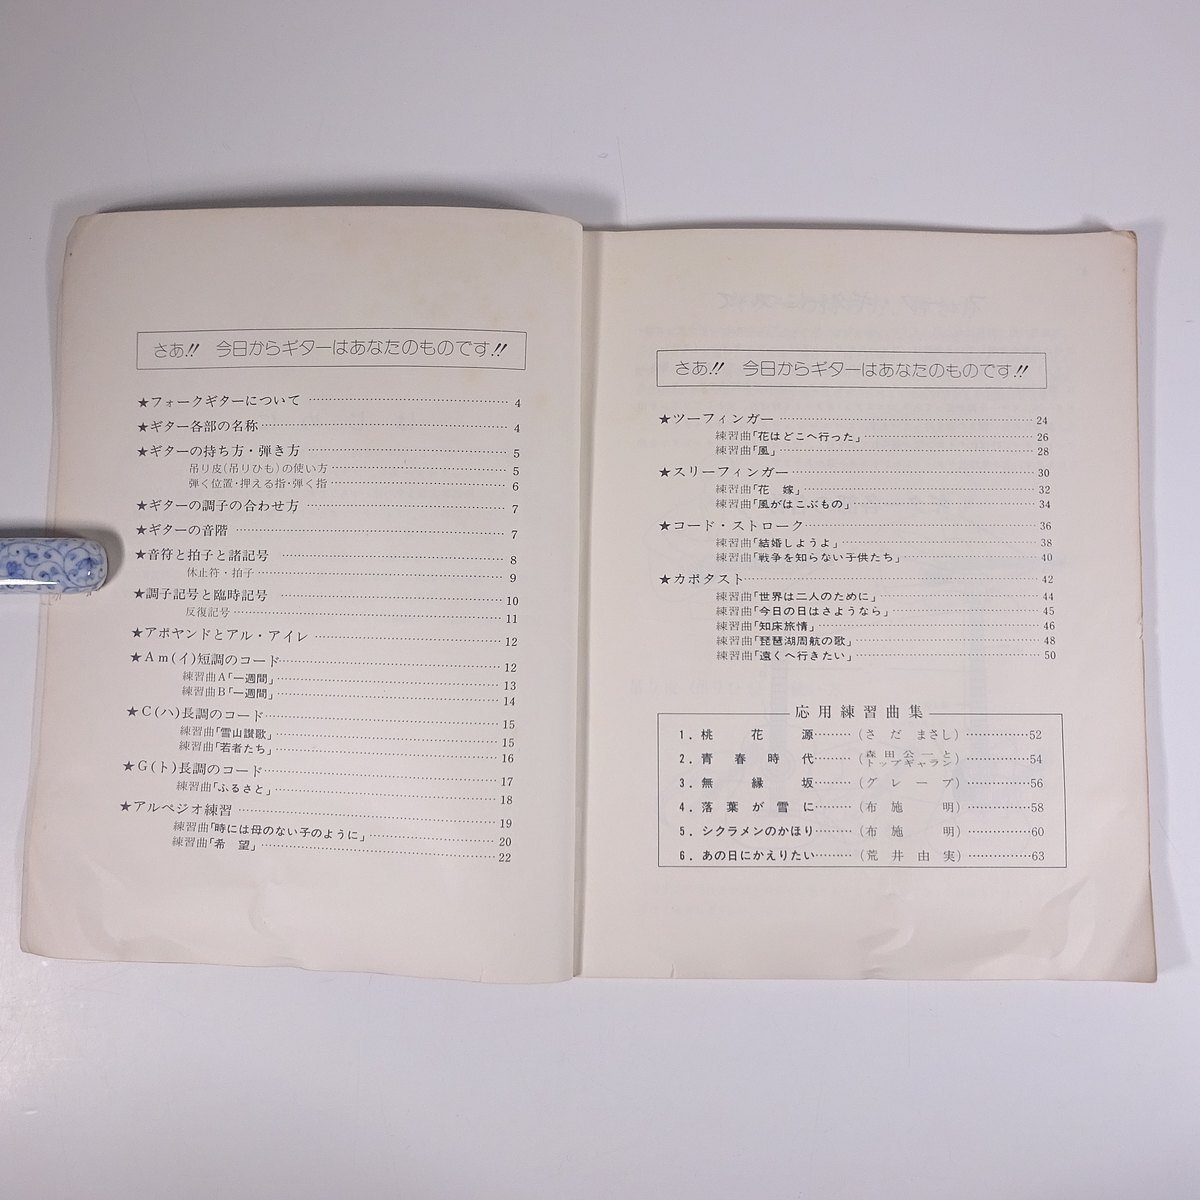 さあ!! 今日からギターはあなたのものです!!
★フォークギターについて 4
★ギター各部の名称 4
★ギターの持ち方・弾き方 5
吊り皮(吊りひも)の使い方 5
弾く位置・押える指・弾く指 6
★ギターの調子の合わせ方 7
★ギターの音階 7
★音符と拍子と諸記号 8
休止符・拍子 9
★調子記号と臨時記号 10
反復記号 11
★アポヤンドとアル・アイレ 12
★Am(イ)短調のコード 12
練習曲A「一週間」 13
練習曲B「一週間」 14
★C(ハ)長調のコード 15
練習曲「雪山讃歌」 15
練習曲「若者たち」 16
★G(ト)長調のコード 17
練習曲「ふるさと」 18
★アルペジオ練習 19
練習曲「時には母のない子のように」 20
練習曲「希 望」 22
さあ!! 今日からギターはあなたのものです!!
★ツーフィンガー 24
練習曲「花はどこへ行った」 26
練習曲「風」 28
★スリーフィンガー 30
練習曲「花 嫁」 32
練習曲「風がはこぶもの」 34
★コード・ストローク 36
練習曲「結婚しようよ」 38
練習曲「戦争を知らない子供たち」 40
★カポタスト 42
練習曲「世界は二人のために」 44
練習曲「今日の日はさようなら」 45
練習曲「知床旅情」 46
練習曲「琵琶湖周航の歌」 48
練習曲「遠くへ行きたい」 50
応用練習曲集
1. 桃花源 (さだまさし) 52
2. 青春時代 (森田公一とトップギャラン) 54
3. 無縁坂 (グレープ) 56
4. 落葉が雪に (布施明) 58
5. シクラメンのかほり (布施明) 60
6. あの日にかえりたい (荒井由実) 63